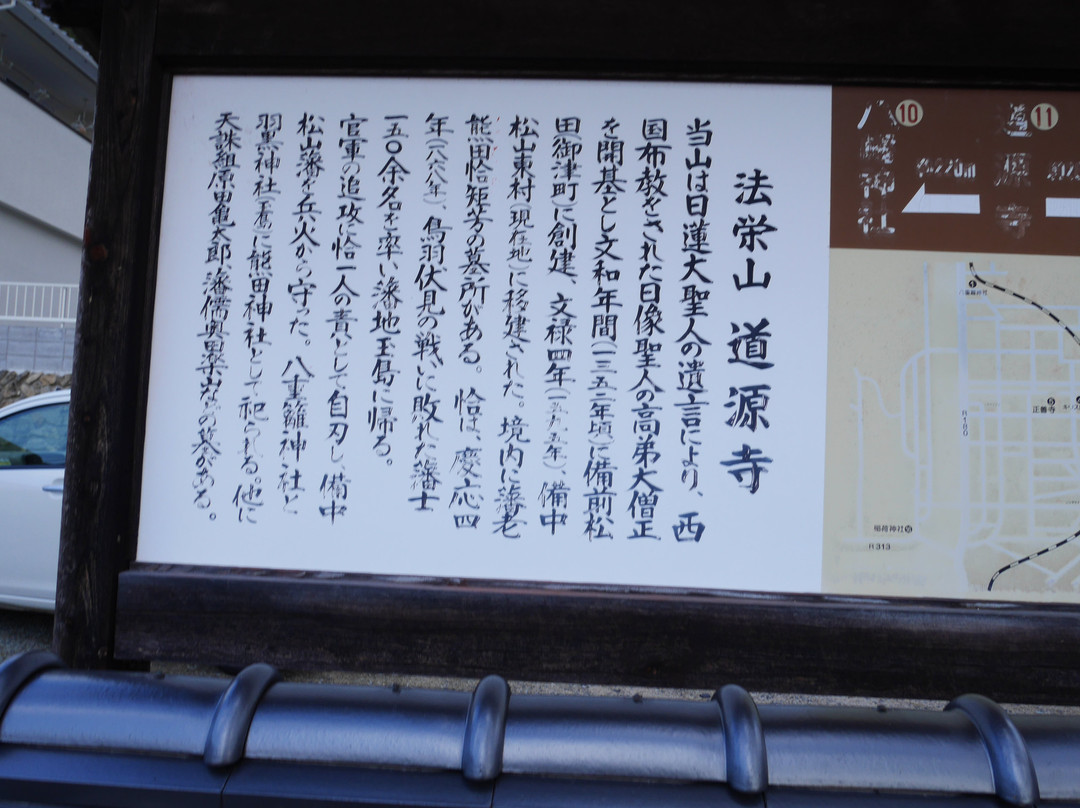 法栄山 道源寺
当山は日蓮大聖人の遺言により、西
国布教をされた日像聖人の高弟大僧正
を開基とし文和年間(一三五二年頃)に備前松
田御津町に創建、文禄四年(一五九五年)、備中
松山東村(現在地)に移建された。境内に藩老
熊田恰矩芳の墓所がある。恰は、慶応四
年(一八六八年)、鳥羽伏見の戦いに敗れた藩士
一五〇余名を率い藩地玉島に帰る。
官軍の追攻に恰一人の責として自刃し、備中
松山藩を兵火から守った。八重籬神社と
羽黒神社(玉島)に熊田神社として祀られる。他に
天誅組原田亀太郎、藩儒奥田楽山などの墓がある。
八幡神社
⑩
約270m
道源寺
⑪
八重籬神社
正善寺
R180
稲荷神社
R313